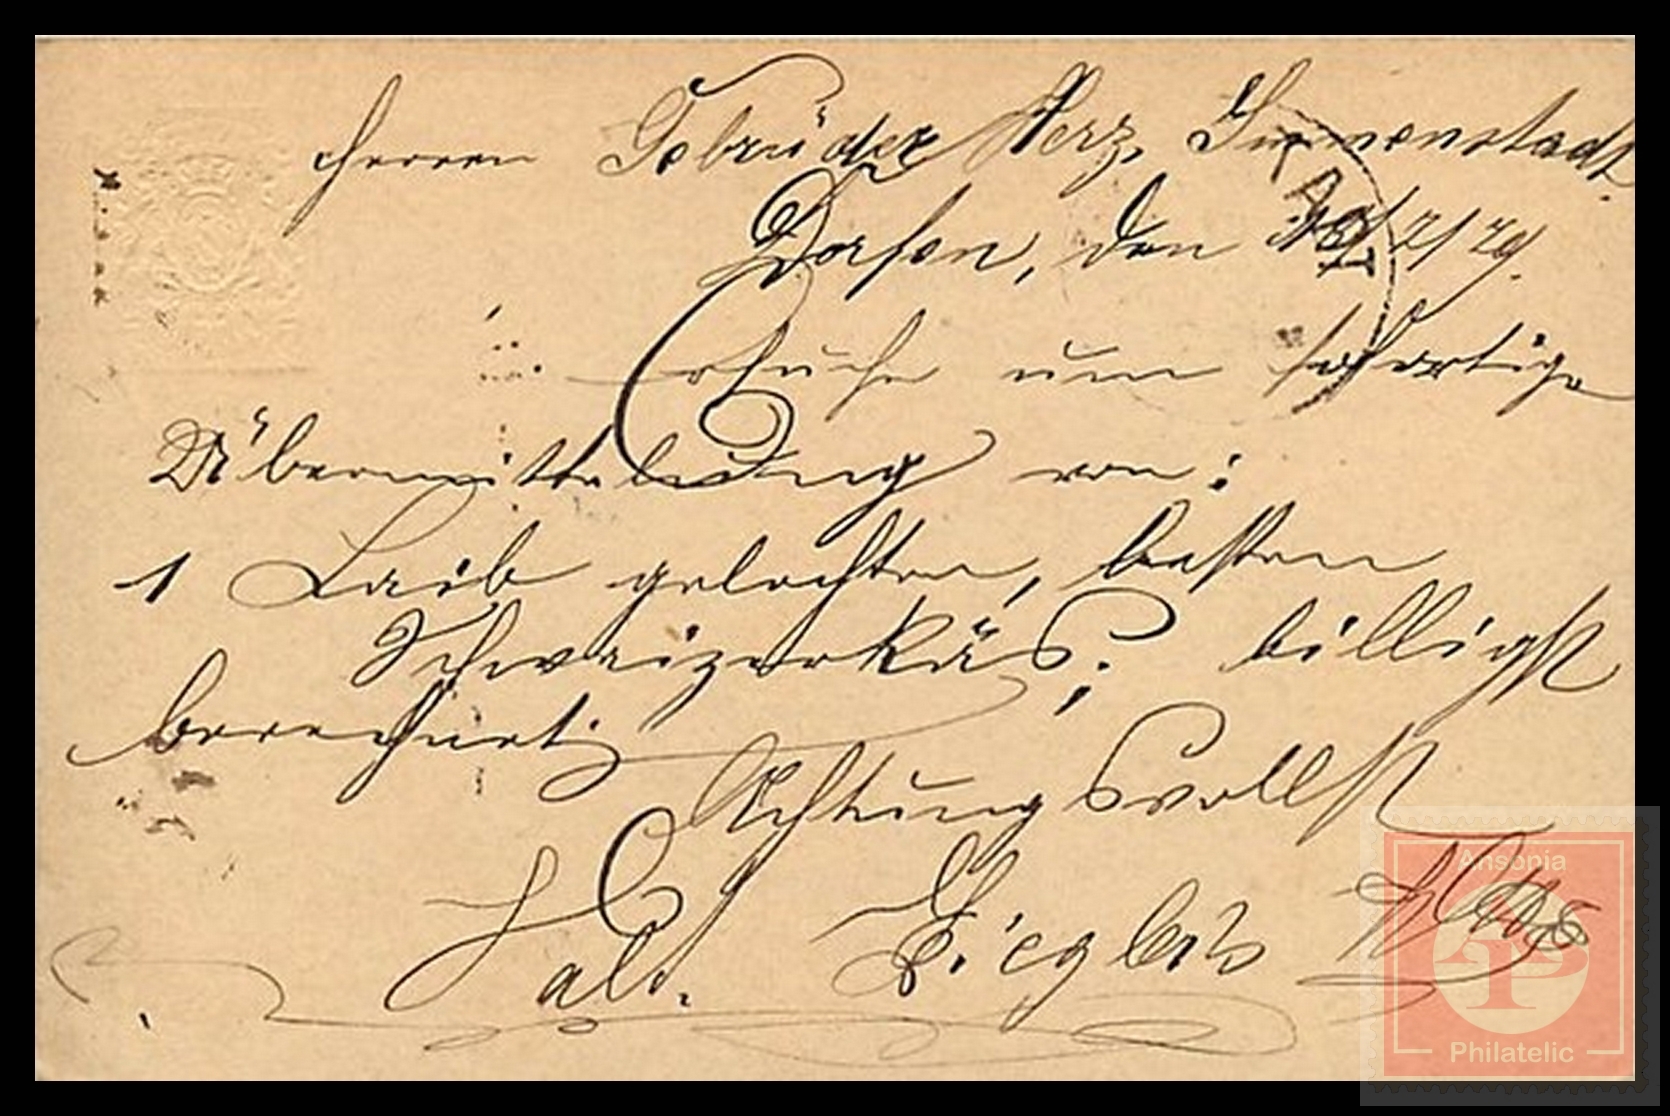 Herren Gebrüder Herz, Immenstadt.
Dorfen, den 19/2/79.
Ersuche um sofortige
Übermittelung von:
1 Laib gelochten, besten
Schweizerkäs; billigst
berechnet;
Achtungsvollst
Sal.
TADT
Ansonia
Philatelic